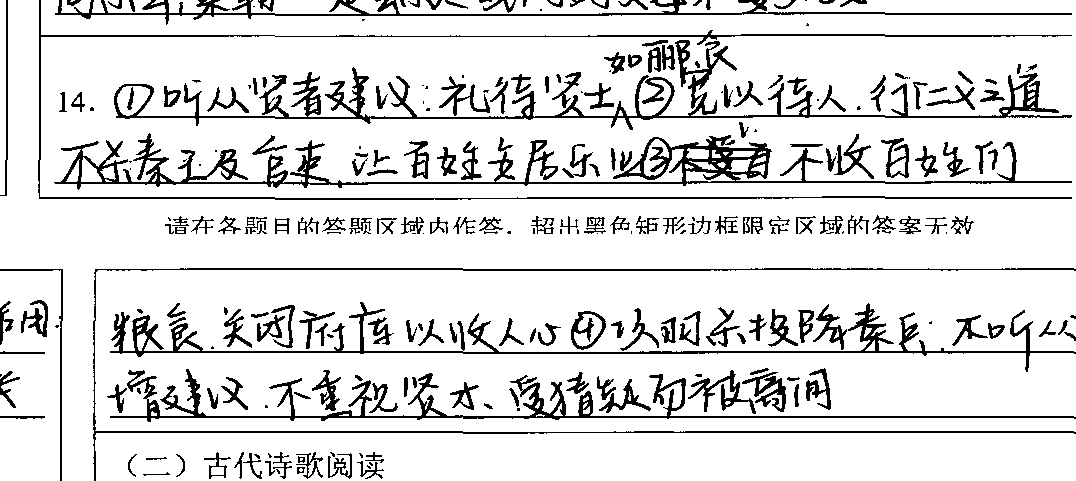 如郦食
14. ①听从贤者建议,礼待贤士 ②宽以待人,行仁义之道
不杀秦王及官吏,让百姓安居乐业③ 不收百姓们
请在各题目的答题区域内作答,超出黑色矩形边框限定区域的答案无效
粮食,关闭府库以收人心④项羽杀投降秦兵,不听从
增建议,不重视贤才、受猜疑而被离间
(二)古代诗歌阅读